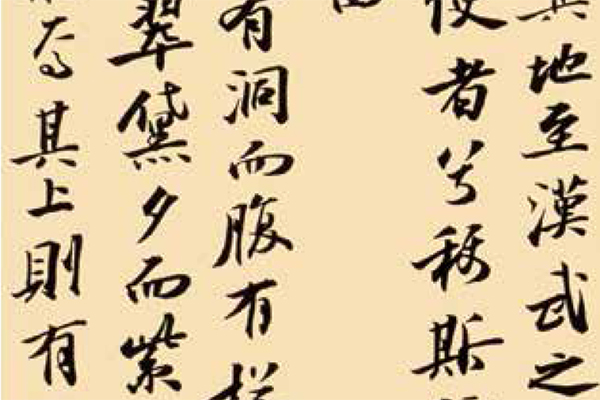 地至漢武之
使者兮斯
有洞而腹有
翠黛夕而紫
焉其上則有